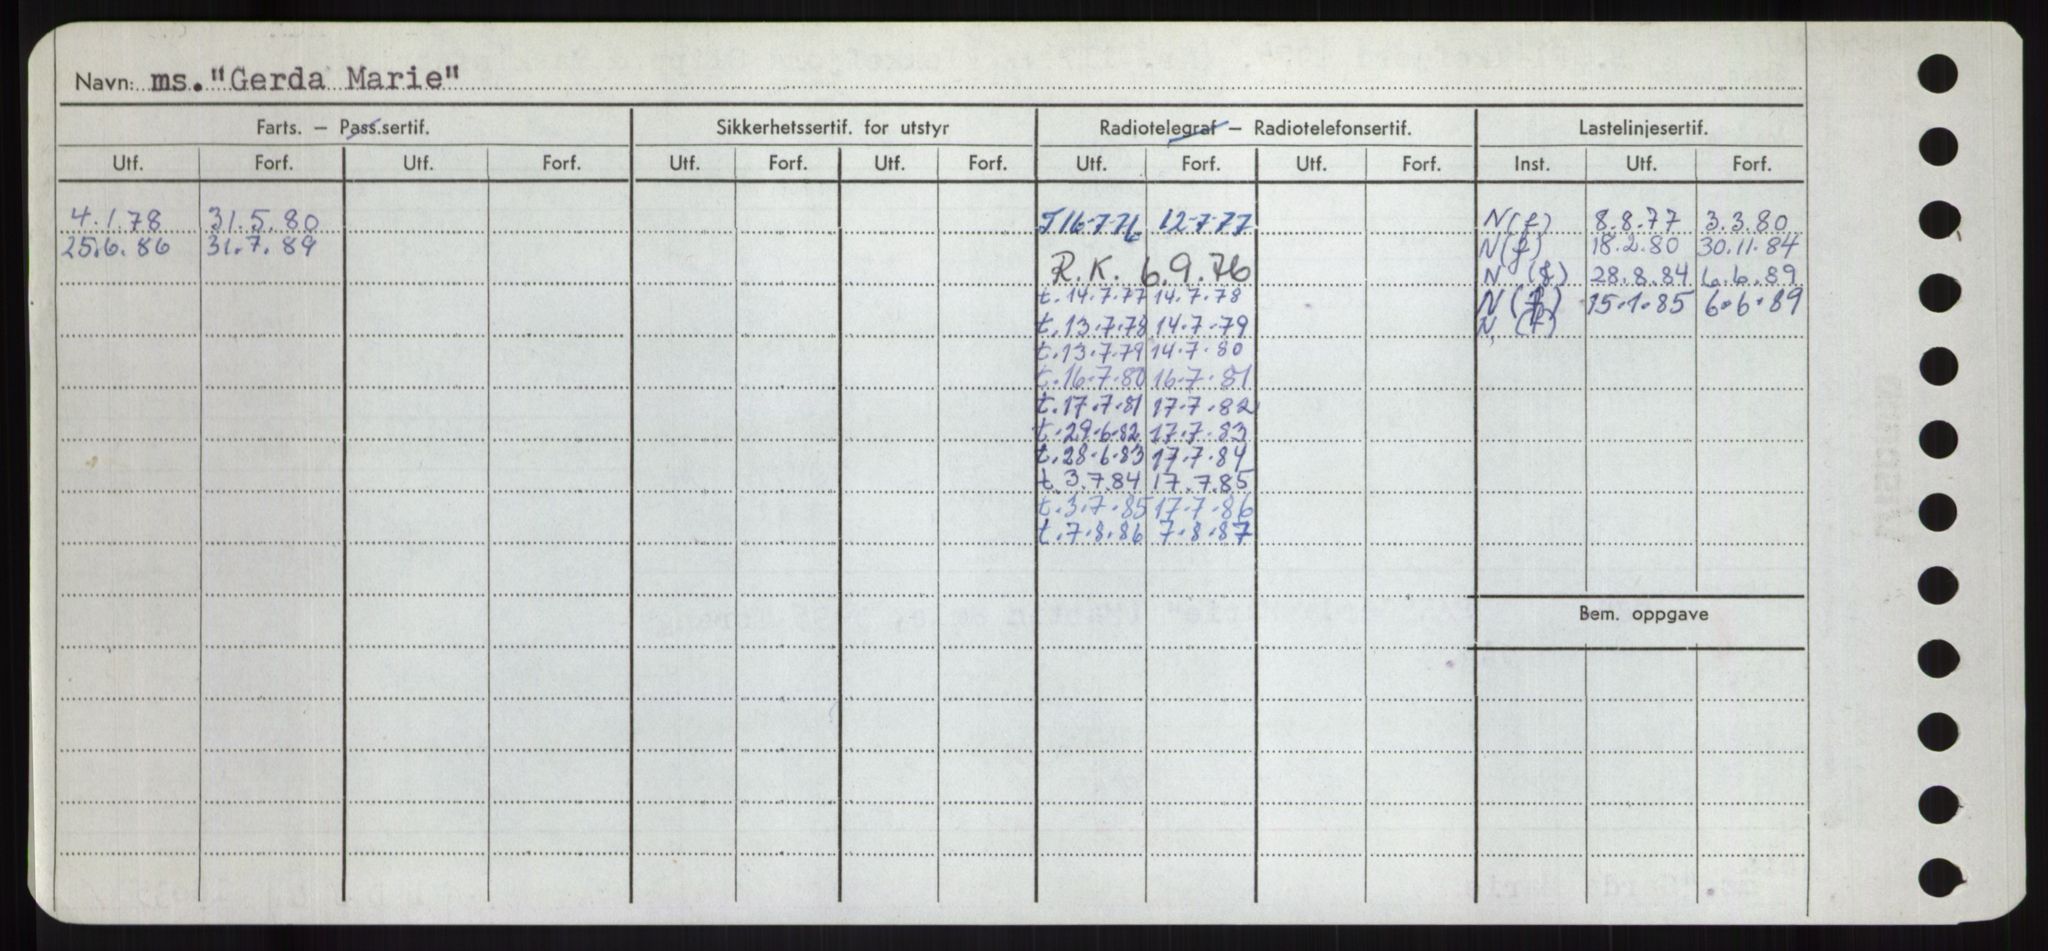 Navn: ms. "Gerda Marie"
Farts. – Pass.sertif. Sikkerhetssertif. for utstyr Radiotelegraf – Radiotelefonsertif. Lastelinjesertif.
Utf. Forf. Utf. Forf. Utf. Forf. Utf. Forf. Utf. Forf. Utf. Forf. Inst. Utf. Forf.
4.1.78 31.5.80 T 16-7-76 12-7-77 N(f) 8.8.77 3.3.80
25.6.86 31.7.89 N(f) 18.2.80 30.11.84
R.K. 6.9.76 N (f) 28.8.84 6.6.89
t.14.7.77 14.7.78 N(f) 15.1.85 6.6.89
t.13.7.78 14.7.79 N (f)
t.13.7.79 14.7.80
t.16.7.80 16.7.81
t.17.7.81 17.7.82
t.29.6.82 17.7.83
t.28.6.83 17.7.84
t.3.7.84 17.7.85
t.3.7.85 17.7.86
t.7.8.86 7.8.87
Bem. oppgave